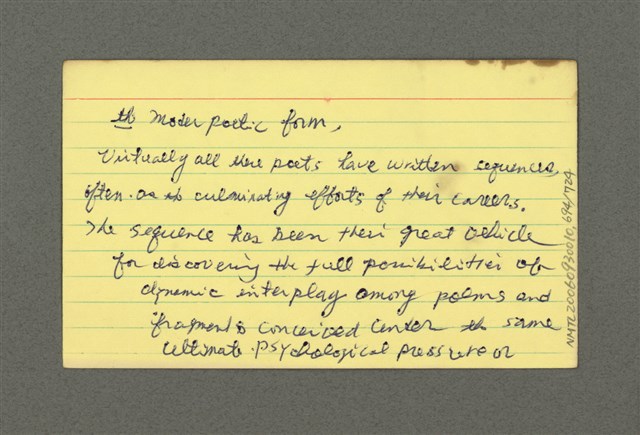 the moder poetic form,
Virtually all these poets have written sequences,
often as the culminating efforts of their careers.
The sequence has been their great vehicle
for discovering the full possibilities of
dynamic interplay among poems and
fragments conceived under the same
ultimate psychological pressure or
NMTL20060930010,694/724